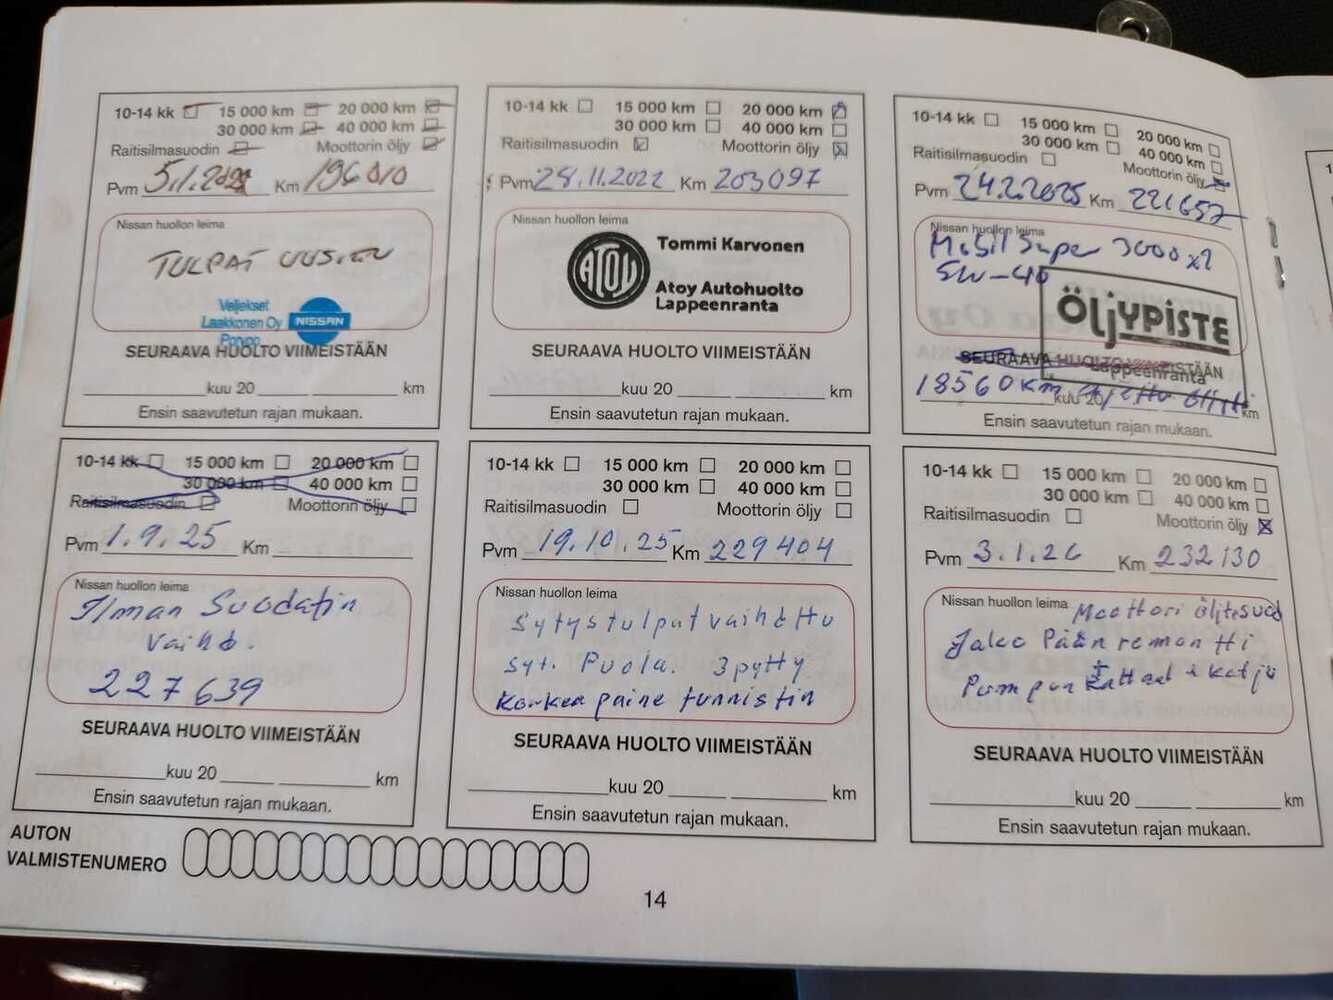 10-14 kk 15 000 km 20 000 km
30 000 km 40 000 km
Raitisilmasuodin Moottorin öljy
Pvm 5.1. Km 196 010
Nissan huollon leima
TULPAT UUSITTU
Veljekset
Laakkonen Oy NISSAN
Porvoo
SEURAAVA HUOLTO VIIMEISTÄÄN
kuu 20 km
Ensin saavutetun rajan mukaan.
10-14 kk 15 000 km 20 000 km
30 000 km 40 000 km
Raitisilmasuodin Moottorin öljy
Pvm 28.11.2022 Km 203097
Nissan huollon leima
ATOY Tommi Karvonen
Atoy Autohuolto
Lappeenranta
SEURAAVA HUOLTO VIIMEISTÄÄN
kuu 20 km
Ensin saavutetun rajan mukaan.
10-14 kk 15 000 km 20 000 km
30 000 km 40 000 km
Raitisilmasuodin Moottorin öljy
Pvm 24.2.2025 Km 221657
Nissan huollon leima
Mobil Super 3000 x1
5W-40
ÖLJYPISTE
Lappeenranta
SEURAAVA HUOLTO VIIMEISTÄÄN
18560 km ajettu öljyt
kuu 20 km
Ensin saavutetun rajan mukaan.
10-14 kk 15 000 km 20 000 km
30 000 km 40 000 km
Raitisilmasuodin Moottorin öljy
Pvm 1.9.25 Km
Nissan huollon leima
Ilman Suodatin
vaihd.
227639
SEURAAVA HUOLTO VIIMEISTÄÄN
kuu 20 km
Ensin saavutetun rajan mukaan.
10-14 kk 15 000 km 20 000 km
30 000 km 40 000 km
Raitisilmasuodin Moottorin öljy
Pvm 19.10.25 Km 229404
Nissan huollon leima
Sytystulput vaihdettu
Syt. Puola. 3 pytty
Korkea paine tunnistin
SEURAAVA HUOLTO VIIMEISTÄÄN
kuu 20 km
Ensin saavutetun rajan mukaan.
10-14 kk 15 000 km 20 000 km
30 000 km 40 000 km
Raitisilmasuodin Moottorin öljy
Pvm 3.1.26 Km 232130
Nissan huollon leima Moottori öljtesuod
Jako Pään remontti
Pumpun + ketju
SEURAAVA HUOLTO VIIMEISTÄÄN
kuu 20 km
Ensin saavutetun rajan mukaan.
AUTON
VALMISTENUMERO
14